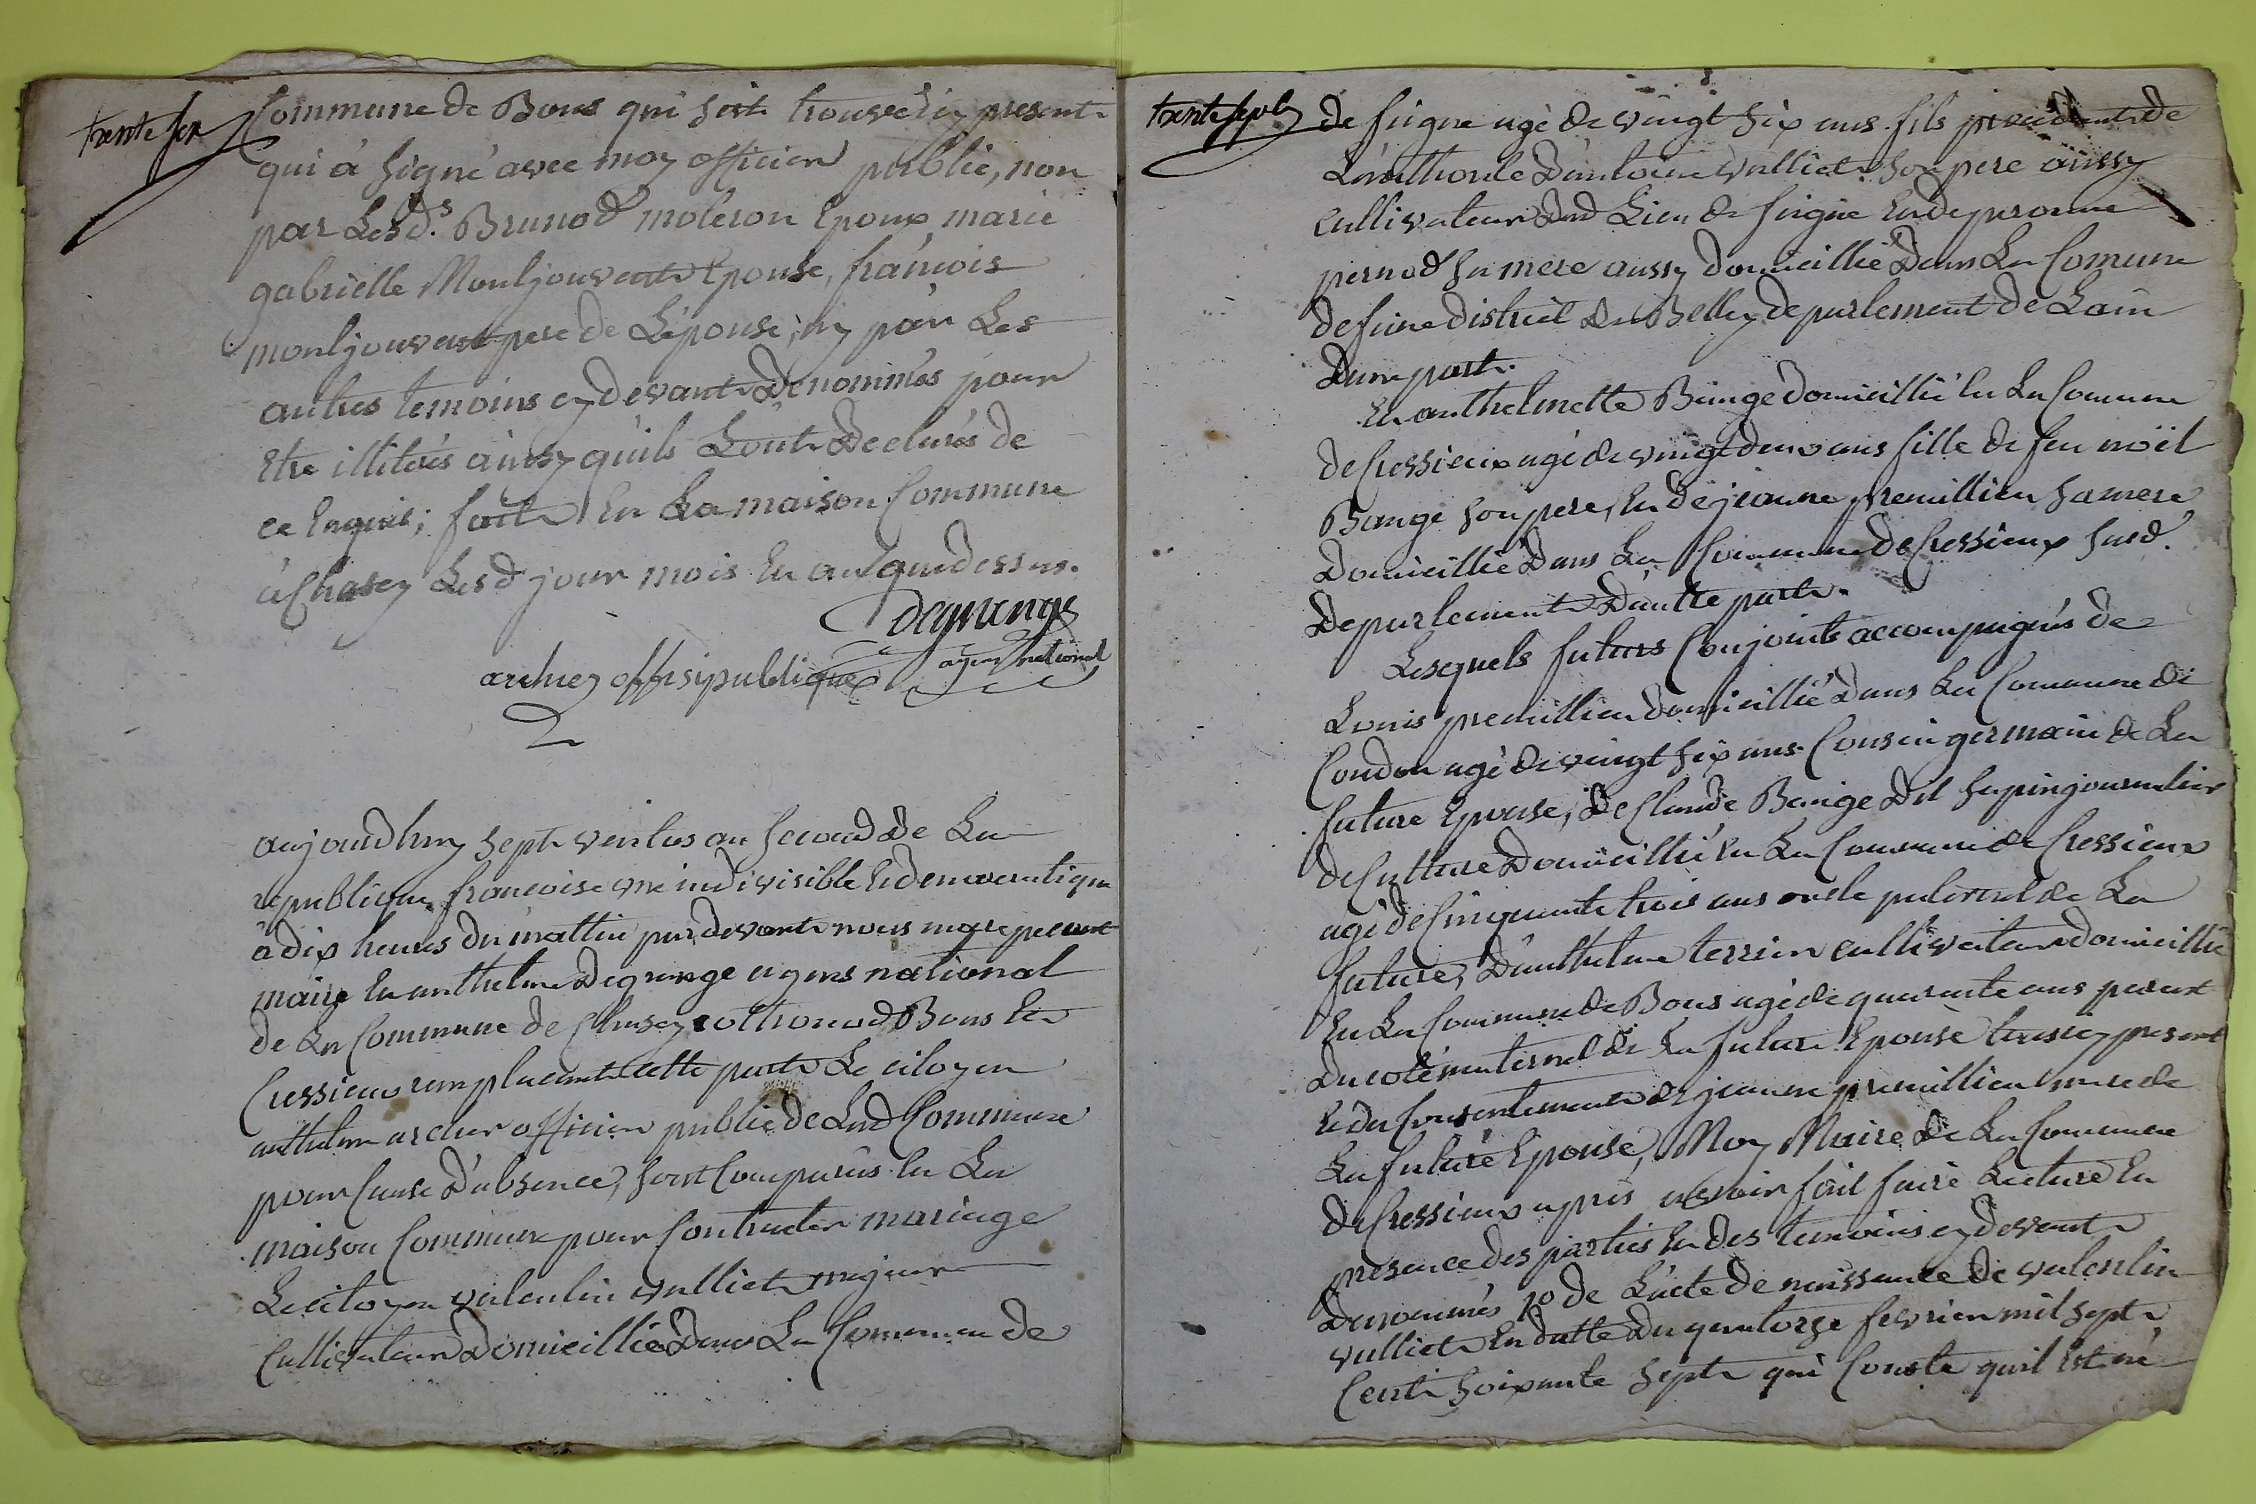 trente six
Commune de Bons qui soit trouvé icy present
qui à signé avec moy officier public, non
par Lesd.s Brunod moleron Epoux marie
gabrielle Montjouvent Epouse, francois
montjouvent pere de L'épouse, ny par Les
autres temoins cydevant Denommés pour
Etre illiterés ainsy quils L'ont Déclarés de
ce Enquis; fait En La maison Commune
à Chasey Lesd jour mois En an que dessus.
degrange
agent national
archer offisipublique
aujourdhuy sept ventos an second de La
republique francoise une indivisible Et democratique
à dix heures du mattin pardevant nous
maire En anthelme Degrange agens national
de La Commune de Chasey cothonod Bons Et
Cressieux remplacant cette parte Le citoyen
anthelme archer officier public de Lad Commune
pour Cause D'absence, sont Comparus En La
maison Commune pour Contracter mariage
Le citoyen valentin vulliet majeur
Cultivateur Domicillié Dans La Commune de
trente sept
de fugne agé de vingt six ans fils
L'authorité D'antoine vulliet son pere aussy
Cultivateur Dud Lieu de fugne Et de peronne
pernod sa mere aussy domicillié Dans La Comune
de District de Belley departement de Lain
Dune part.
Et anthelmette Bange domicillié En La Comune
de Cressieux agé de vingt deux ans fille de feu noël
Bange son pere, En de jeanne premillieu sa mere
Domicillié Dans La Commune de Cressieux susd.
Departement D'autre part.
Lesquels futurs Conjoints accompagnés de
Louis premillieu domicillié Dans La Commune de
Condon agé de vingt six ans Cousin germain de La
future Epouse, de Claude Bange Dit journalier
de Culture Domicillié En La Commune de Cressieux
agé de Cinquante trois ans oncle paternel de La
future, D'anthelme terrier cultivateur domicillié
En La Commune de Bons agé de quarante ans parent
Du coté maternel de La future Epouse present
Et du Consentement de jeanne premillieu mere de
La future Epouse, Moy Maire de La Commune
de Cressieux apres avoir fait faire Lecture En
presence des parties En des temoins cydevant
Denommés 1o de L'acte de naissance de valentin
vulliet En datte Du quatorze fevrier mil sept
Cent soixante sept qui Conste quil Est né